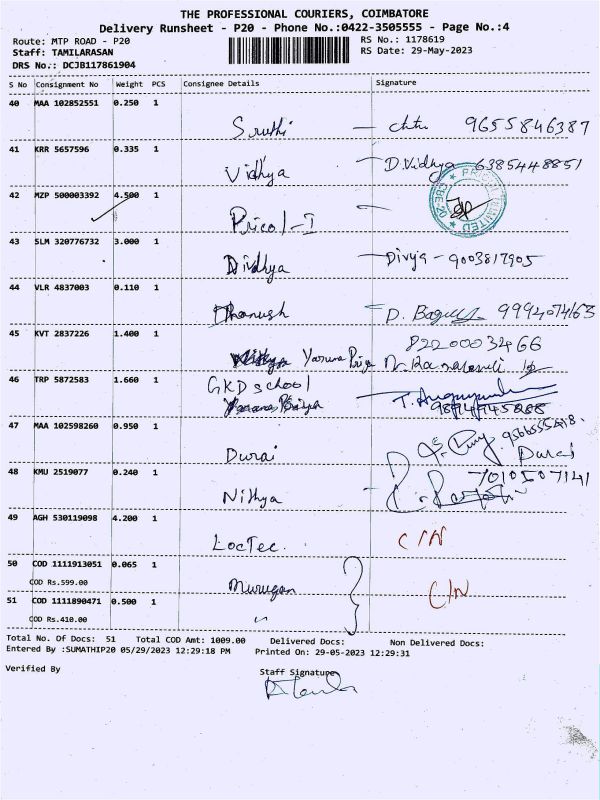 THE PROFESSIONAL COURIERS, COIMBATORE
Delivery Runsheet - P20 - Phone No.:0422-3505555 - Page No.:4
Route: MTP ROAD - P20 RS No.: 1178619
Staff: TAMILARASAN RS Date: 29-May-2023
DRS No.: DCJB117861904
S No Consignment No Weight PCS Consignee Details Signature
40 MAA 102852551 0.250 1
Sruthi — 9655846387
41 KRR 5657596 0.335 1
Vidhya — D.Vidhya 6385448851
42 MZP 500003392 4.500 1
Pricol-I — PRICOL LIMITED CBE-20
43 SLM 320776732 3.000 1
Dividhya — Divya - 9003817905
44 VLR 4837003 0.110 1
Dhanush — D. 9994074163
45 KVT 2837226 1.400 1
8220003466
Yaruna Priya
46 TRP 5872583 1.660 1
GKD school T.
47 MAA 102598260 0.950 1
Durai Durai
48 KMU 2519077 0.240 1
Nithya — 7010507141
49 AGH 530119098 4.200 1
LocTec. C/N
50 COD 1111913051 0.065 1
COD Rs.599.00
Murugan C/N
51 COD 1111890471 0.500 1
COD Rs.410.00
Total No. Of Docs: 51 Total COD Amt: 1009.00 Delivered Docs: Non Delivered Docs:
Entered By :SUMATHIP20 05/29/2023 12:29:18 PM Printed On: 29-05-2023 12:29:31
Verified By Staff Signature